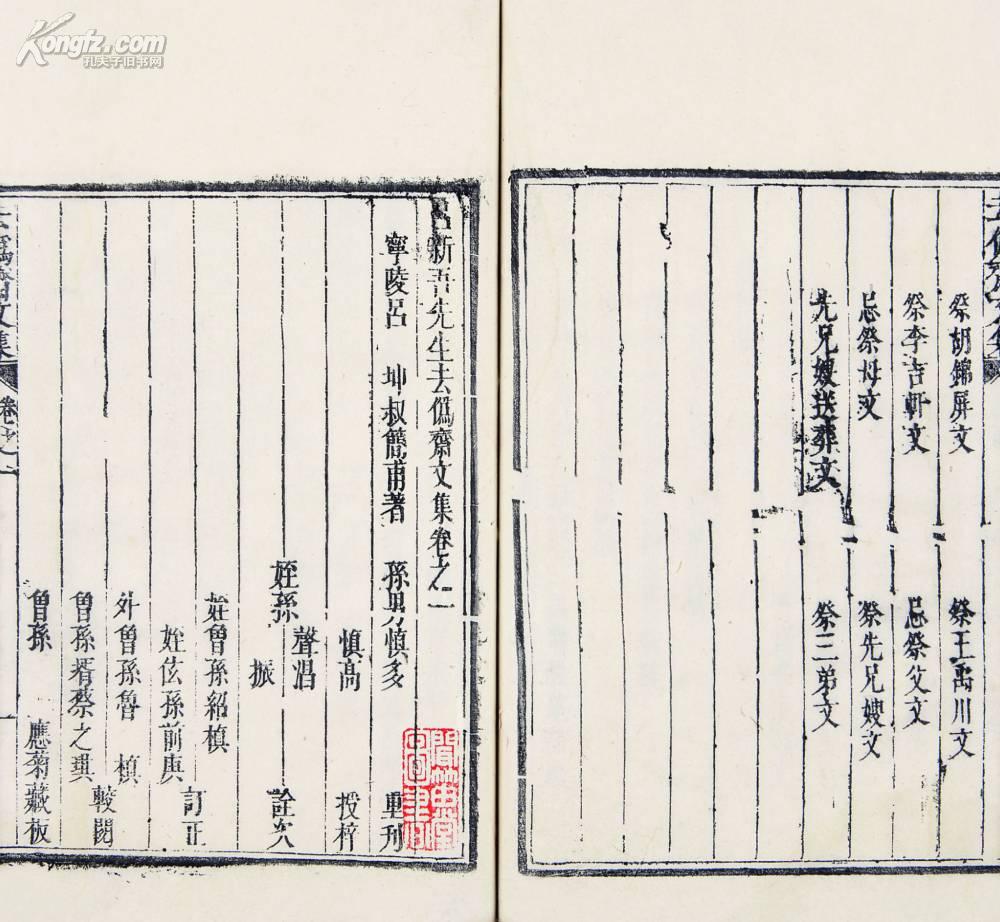 Kongfz.com
孔夫子旧书网
去僞齋文集
祭胡錦屏文 祭王禹川文
祭李吉軒文 忌祭父文
忌祭母文 祭先兄嫂文
先兄嫂送葬文 祭三弟文
呂新吾先生去僞齋文集卷之一
寧陵呂 坤叔簡甫著 孫男慎多 重刋
慎高 授梓
聲滔
姪孫 詮次
振
姪曾孫紹楨
訂正
姪伭孫前典
外曾孫魯 楨
較閱
曾孫壻蔡之璵
曾孫 應菊藏板
去僞齋文集 卷之一 一